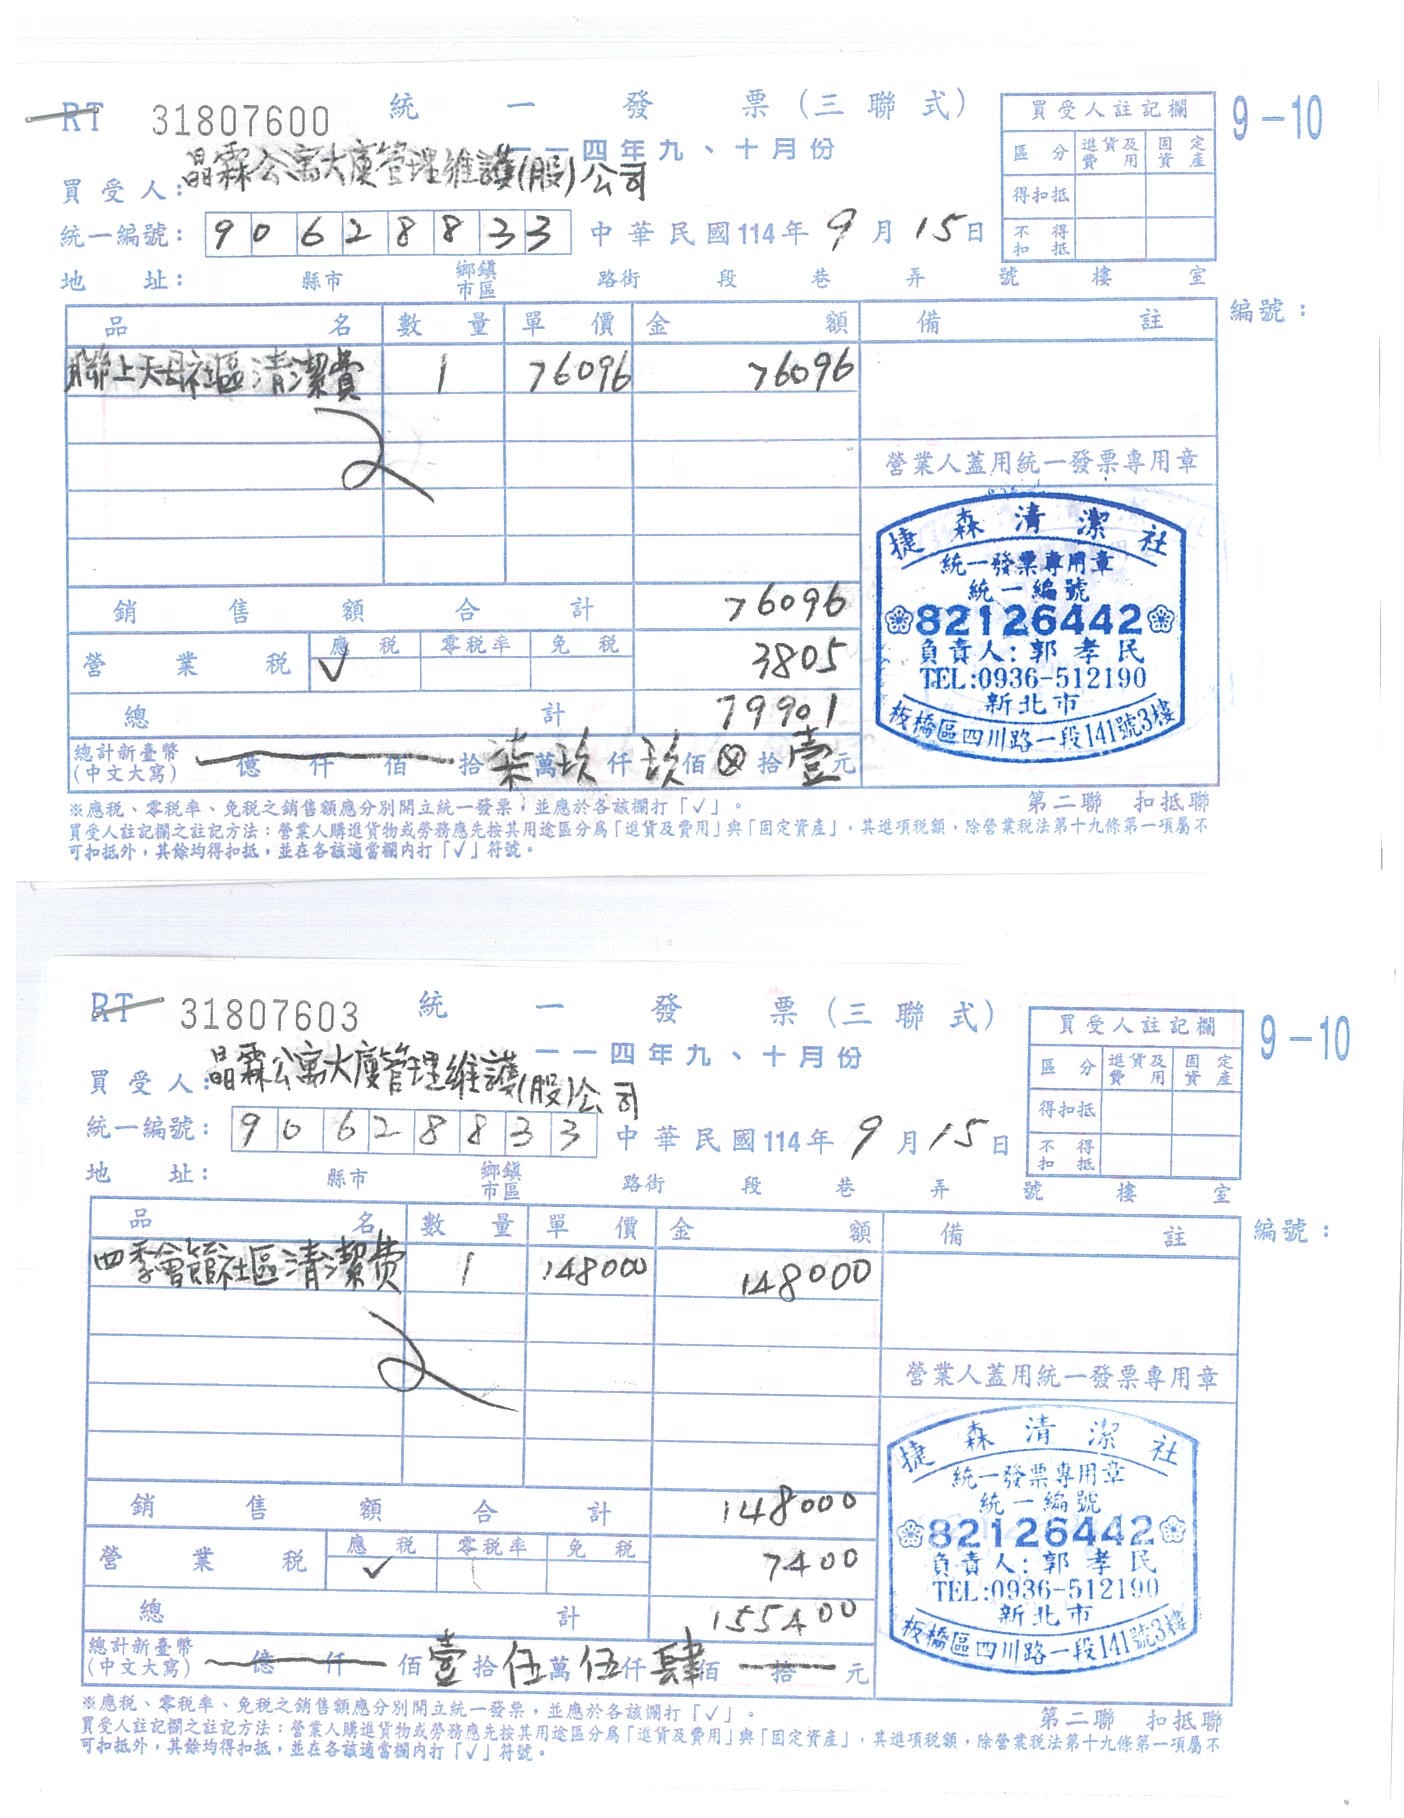 RT 31807600 統一發票(三聯式) 9-10
一一四年九、十月份
買受人：晶霖公寓大廈管理維護(股)公司
統一編號：90628833 中華民國114年9月15日
地址： 縣市 鄉鎮市區 路街 段 巷 弄 號 樓 室
買受人註記欄
區分 進貨及費用 固定資產
得扣抵
不得扣抵
品名 數量 單價 金額 備註 編號：
聯上天母社區清潔費 1 76096 76096
營業人蓋用統一發票專用章
捷森清潔社
統一發票專用章
統一編號
82126442
負責人:郭孝民
TEL:0936-512190
新北市
板橋區四川路一段141號3樓
銷售額合計 76096
營業稅 應稅 ✓ 零稅率 免稅 3805
總計 79901
總計新臺幣(中文大寫) 億仟佰拾柒萬玖仟玖佰⊗拾壹元
※應稅、零稅率、免稅之銷售額應分別開立統一發票，並應於各該欄打「✓」。 第二聯 扣抵聯
買受人註記欄之註記方法：營業人購進貨物或勞務應先按其用途區分為「進貨及費用」與「固定資產」，其進項稅額，除營業稅法第十九條第一項屬不
可扣抵外，其餘均得扣抵，並在各該適當欄內打「✓」符號。
RT 31807603 統一發票(三聯式) 9-10
一一四年九、十月份
買受人：晶霖公寓大廈管理維護(股)公司
統一編號：90628833 中華民國114年9月15日
地址： 縣市 鄉鎮市區 路街 段 巷 弄 號 樓 室
買受人註記欄
區分 進貨及費用 固定資產
得扣抵
不得扣抵
品名 數量 單價 金額 備註 編號：
四季會館社區清潔費 1 148000 148000
營業人蓋用統一發票專用章
捷森清潔社
統一發票專用章
統一編號
82126442
負責人:郭孝民
TEL:0936-512190
新北市
板橋區四川路一段141號3樓
銷售額合計 148000
營業稅 應稅 ✓ 零稅率 免稅 7400
總計 155400
總計新臺幣(中文大寫) 億仟佰壹拾伍萬伍仟肆佰拾元
※應稅、零稅率、免稅之銷售額應分別開立統一發票，並應於各該欄打「✓」。 第二聯 扣抵聯
買受人註記欄之註記方法：營業人購進貨物或勞務應先按其用途區分為「進貨及費用」與「固定資產」，其進項稅額，除營業稅法第十九條第一項屬不
可扣抵外，其餘均得扣抵，並在各該適當欄內打「✓」符號。